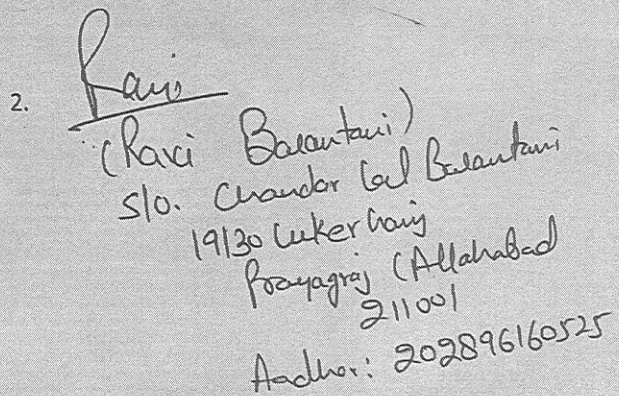 2. Ravi
(Ravi Basantani)
S/o. Chandar Lal Basantani
19/30 Lukerganj
Prayagraj (Allahabad
211001
Aadhar: 202896160525